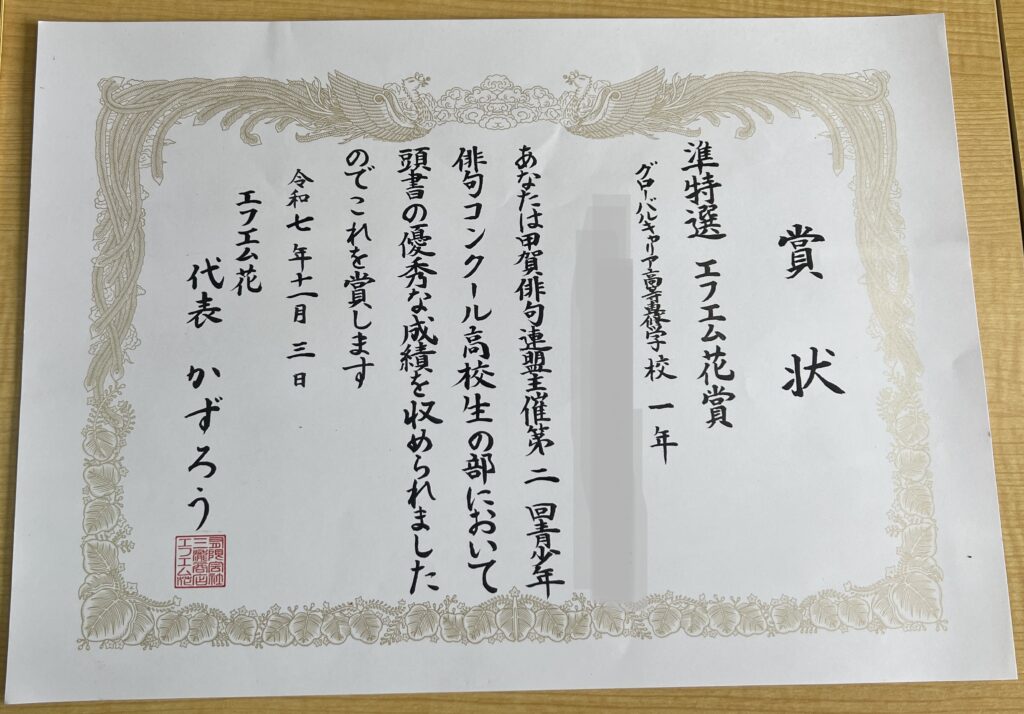 賞状
準特選 エフエム花賞
グローバルキャリア高等専修学校 一年
あなたは甲賀俳句連盟主催第二回青少年
俳句コンクール高校生の部において
頭書の優秀な成績を収められました
のでこれを賞します
令和七年十一月三日
エフエム花
代表 かずろう
エフエム花